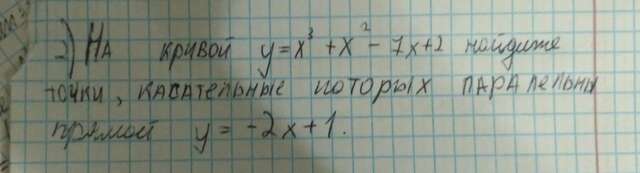 2) На кривой y=x³+x²-7x+2 найдите
точки, касательные которых паралельны
прямой y=-2x+1.